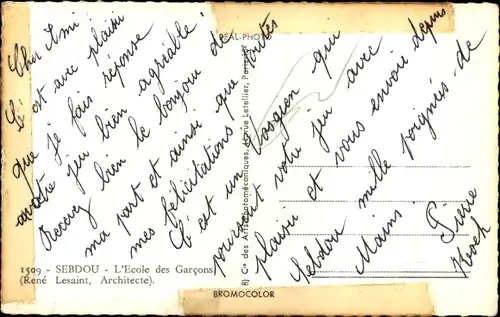 Cher Ami
C'est avec plaisir
que je fais réponse
à votre jeu bien agréable
Recevez bien le bonjour de
ma part et ainsi que toutes
mes félicitations
C'est un Vosgien qui
poursuit votre jeu avec
plaisir et vous envoie depuis
Sebdou mille poignées de
Mains. Pierre
REAL-PHOTO
Cie des Arts Photomécaniques, Rue Letellier, Paris
1509 - SEBDOU - L'Ecole des Garçons
(René Lesaint, Architecte).
BROMOCOLOR